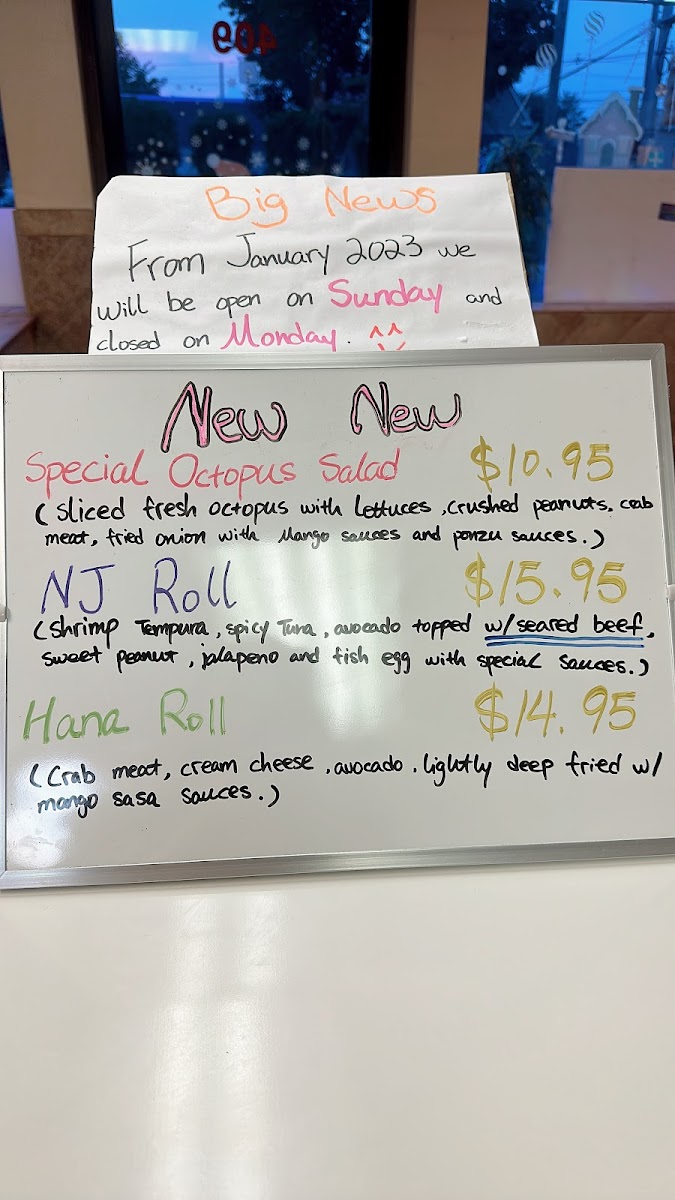 409
Big News
From January 2023 we
will be open on Sunday and
closed on Monday. ^^
New New
Special Octopus Salad $10.95
(Sliced fresh octopus with lettuces, crushed peanuts, crab
meat, fried onion with Mango sauces and ponzu sauces.)
NJ Roll $15.95
(Shrimp Tempura, spicy Tuna, avocado topped w/seared beef,
sweet peanut, jalapeno and fish egg with special sauces.)
Hana Roll $14.95
(Crab meat, cream cheese, avocado, lightly deep fried w/
mango sasa sauces.)